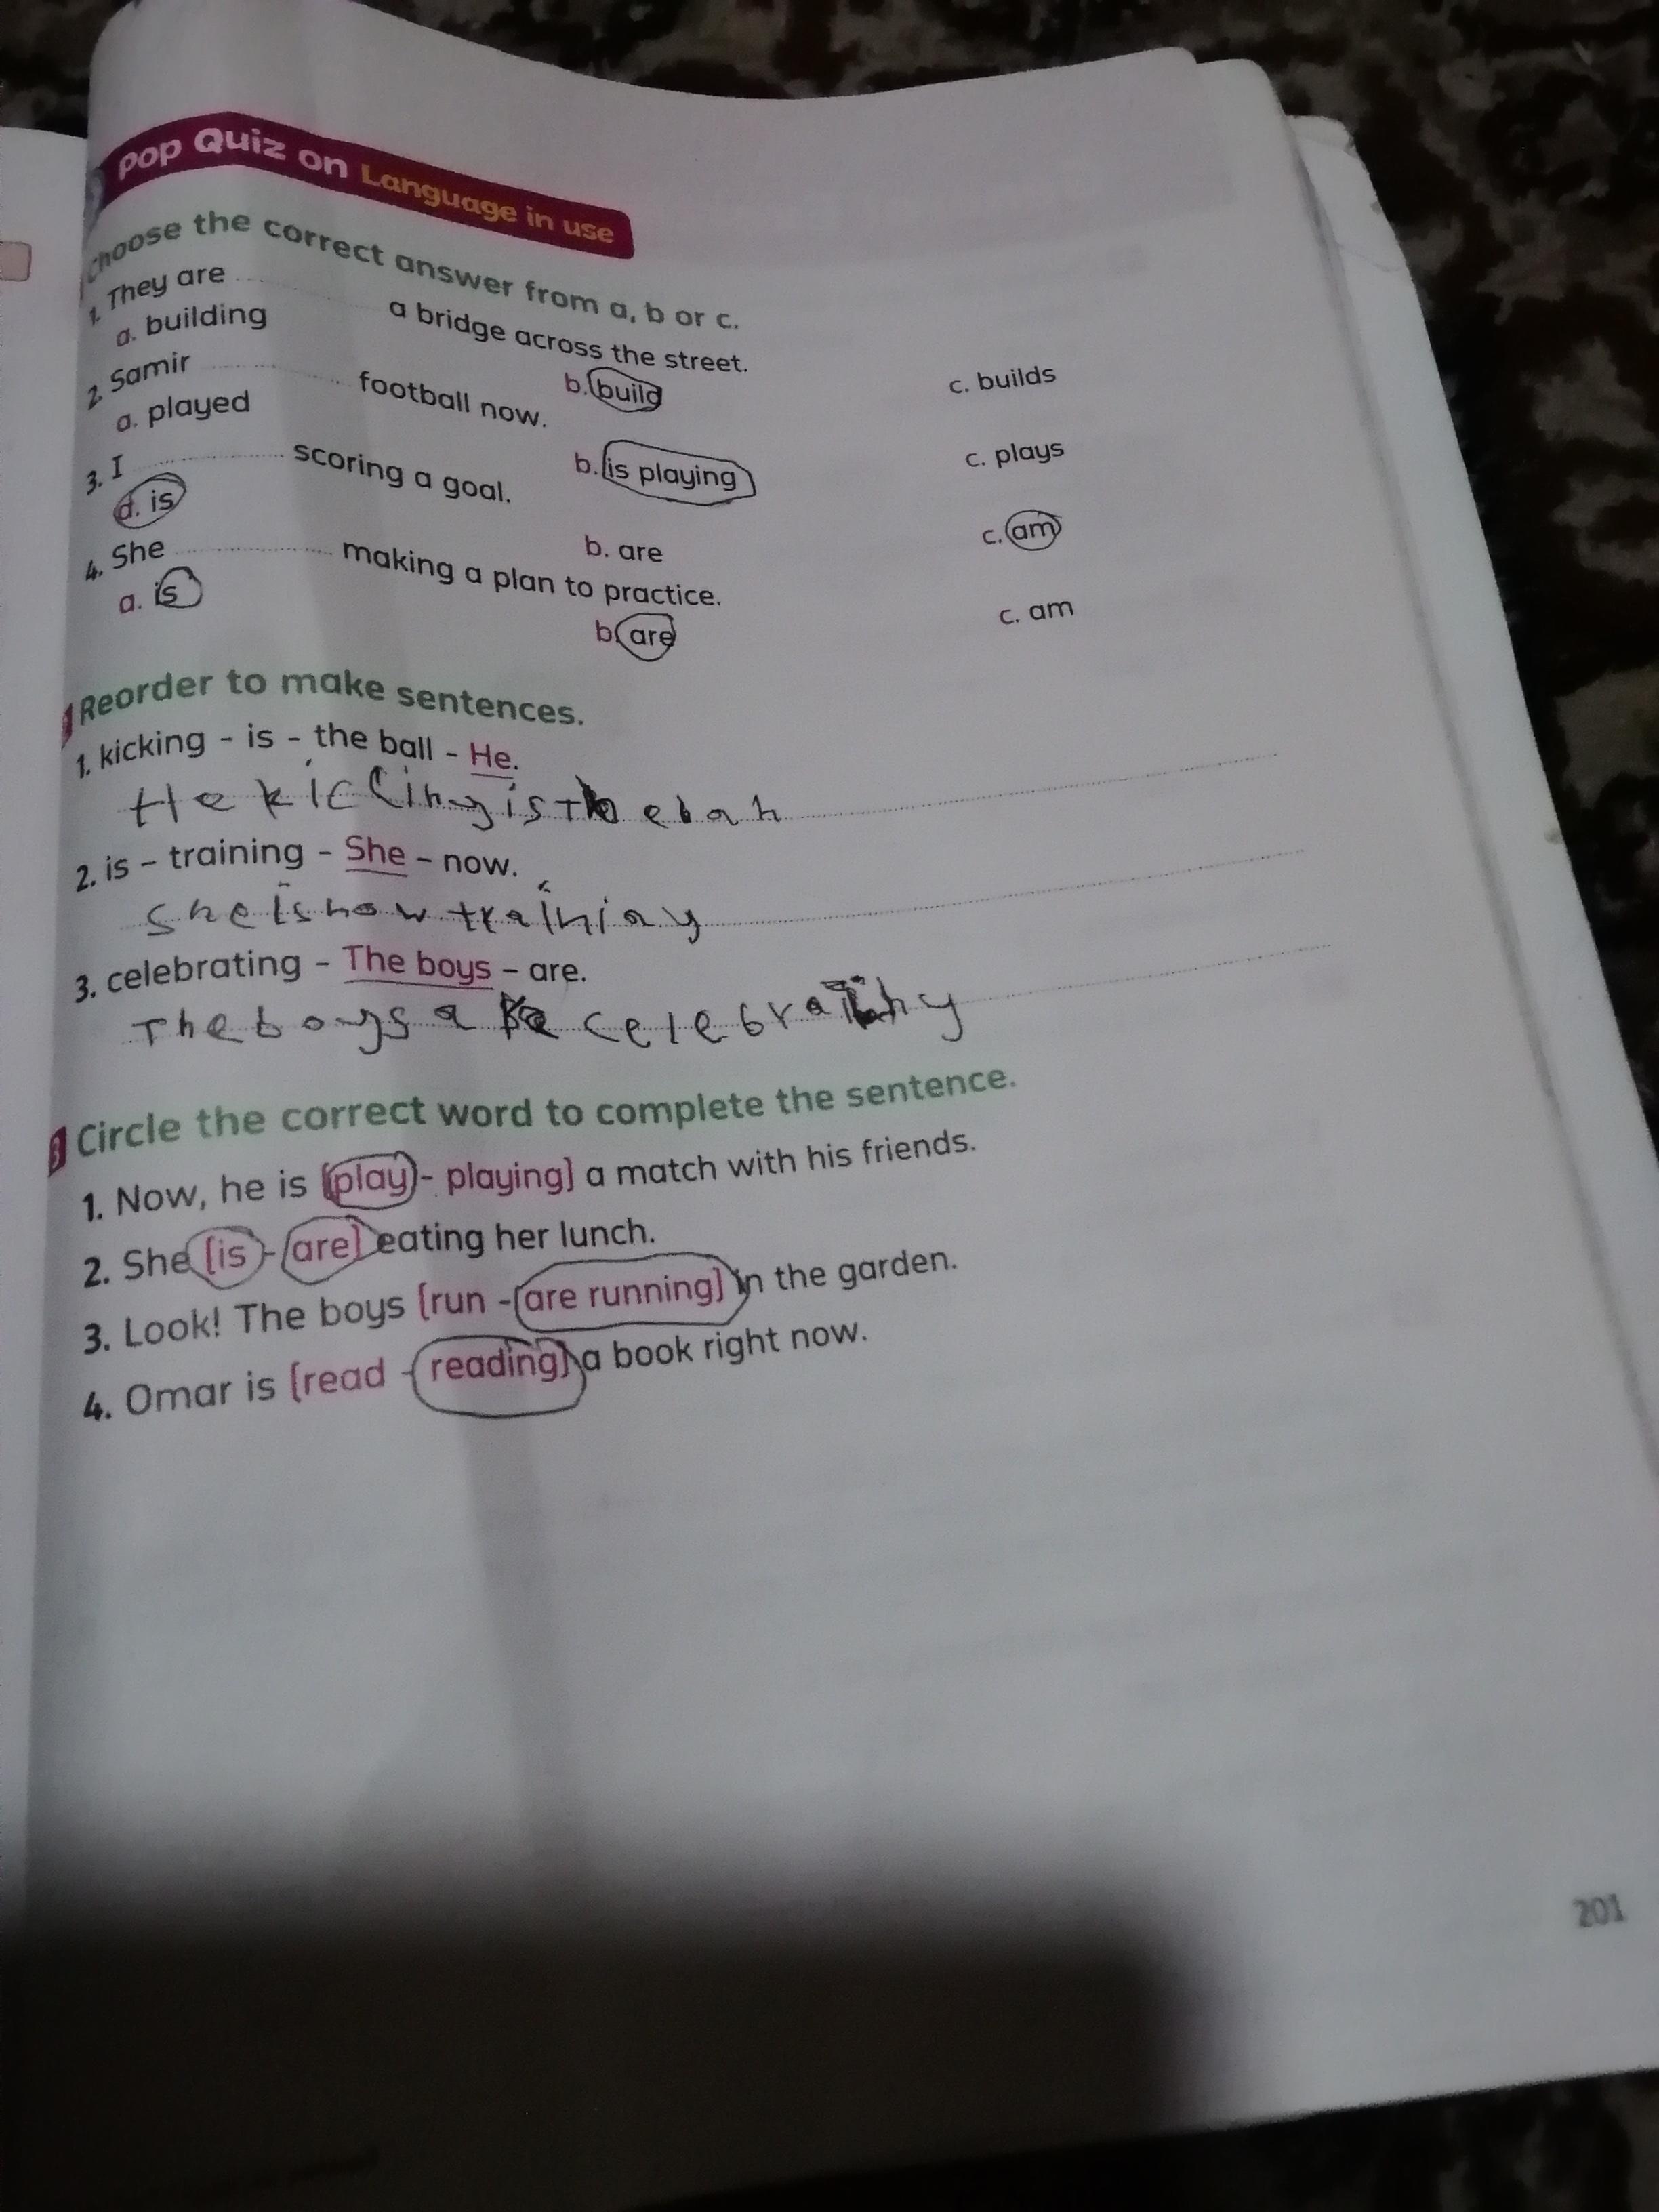 Pop Quiz on Language in use
Choose the correct answer from a, b or c.
1. They are .......... a bridge across the street.
a. building b. build c. builds
2. Samir .......... football now.
a. played b. is playing c. plays
3. I .......... scoring a goal.
d. is b. are c. am
4. She .......... making a plan to practice.
a. is b. are c. am
Reorder to make sentences.
1. kicking - is - the ball - He.
He kicking is the
2. is - training - She - now.
she is now
3. celebrating - The boys - are.
The boys are
3 Circle the correct word to complete the sentence.
1. Now, he is (play - playing) a match with his friends.
2. She (is - are) eating her lunch.
3. Look! The boys (run - are running) in the garden.
4. Omar is (read - reading) a book right now.
201